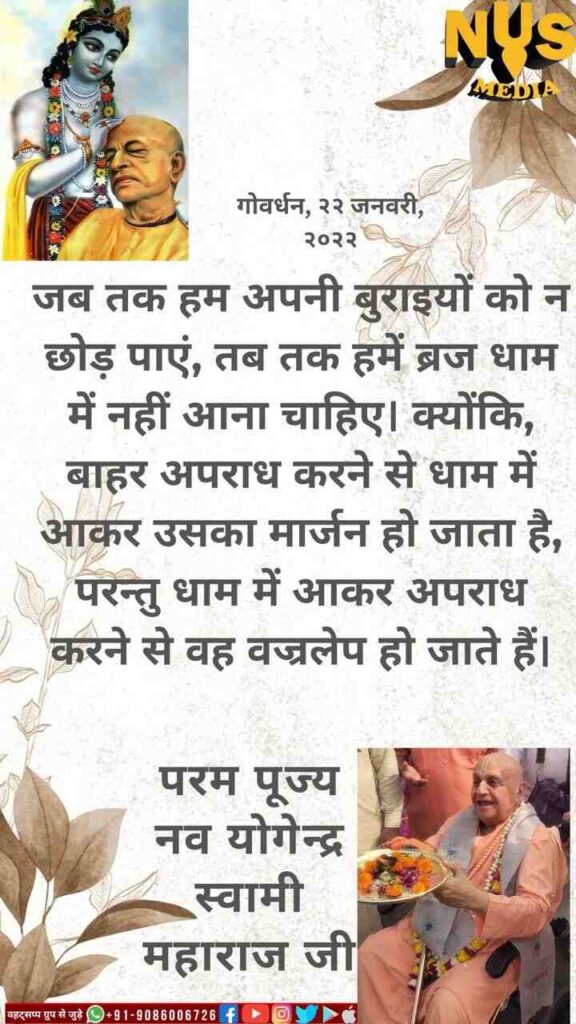 NUS
MEDIA
गोवर्धन, २२ जनवरी,
२०२२
जब तक हम अपनी बुराइयों को न
छोड़ पाएं, तब तक हमें ब्रज धाम
में नहीं आना चाहिए। क्योंकि,
बाहर अपराध करने से धाम में
आकर उसका मार्जन हो जाता है,
परन्तु धाम में आकर अपराध
करने से वह वज्रलेप हो जाते हैं।
परम पूज्य
नव योगेन्द्र
स्वामी
महाराज जी
वहट्सप्प ग्रुप से जुड़े +91-9086006726